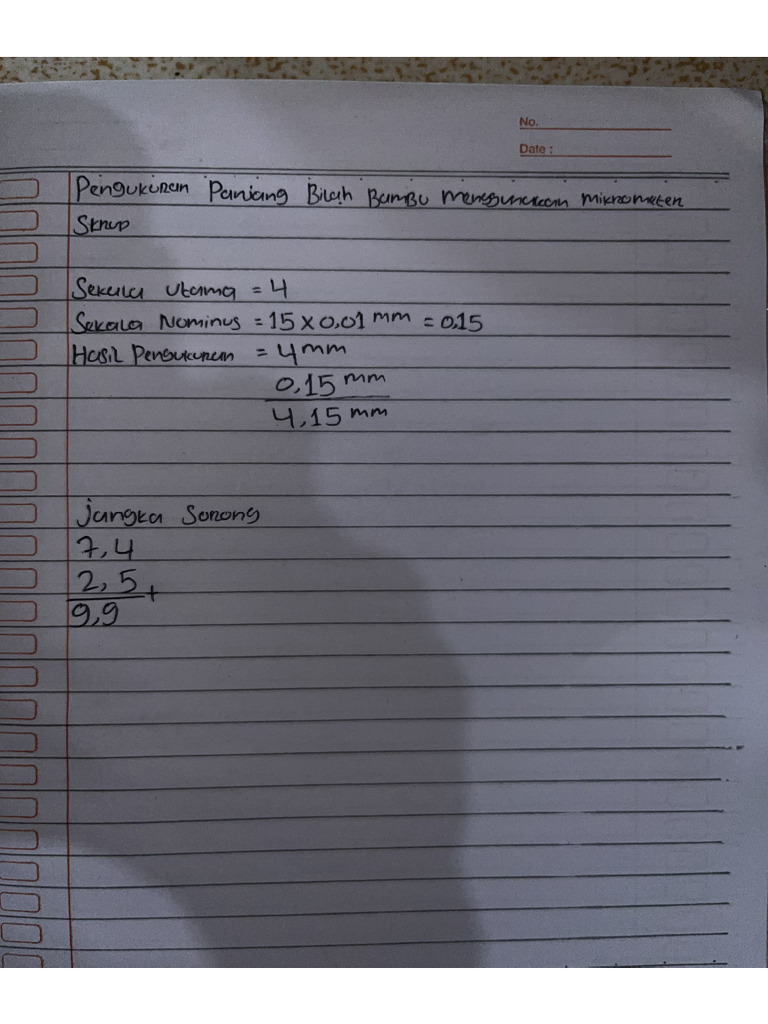 No.
Date :
Pengukuran Panjang Bilah Bambu menggunakan mikrometer
Skrup
Sekala Utama = 4
Sekala Nominus = 15 x 0,01 mm = 0,15
Hasil Pengukuran = 4 mm
0,15 mm
4,15 mm
Jangka Sorong
7,4
2,5 +
9,9